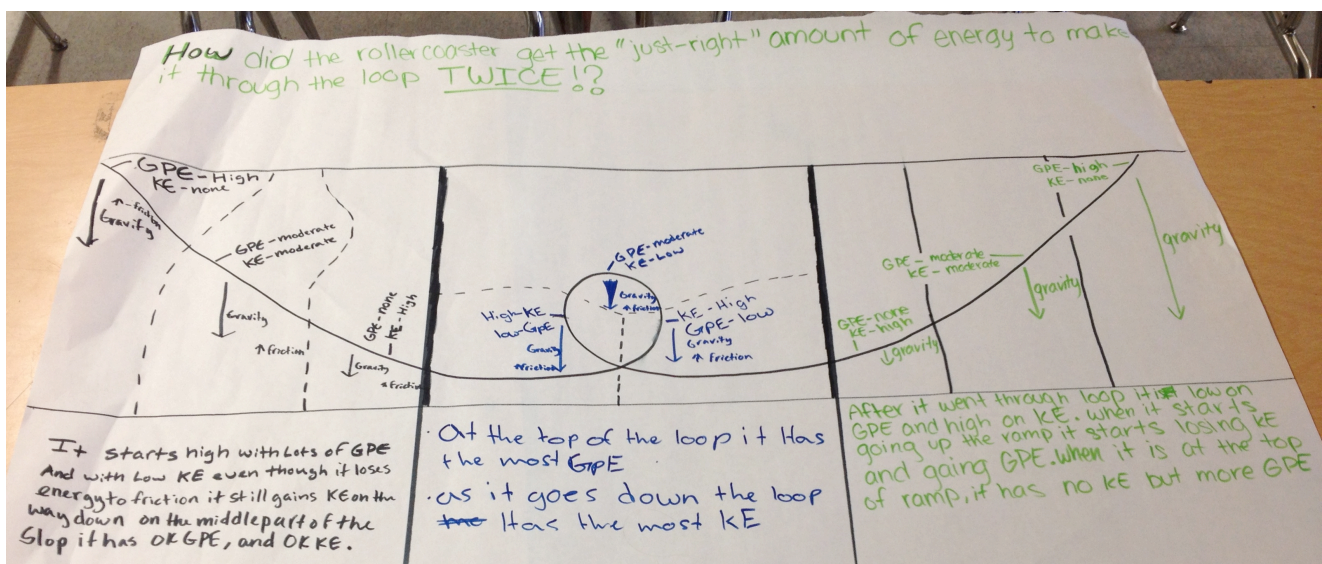 How did the rollercoaster get the "just-right" amount of energy to make
it through the loop TWICE!?
GPE-High
KE-none
friction
Gravity
GPE-moderate
KE-moderate
Gravity
friction
GPE-none
KE-High
Gravity
friction
GPE-moderate
KE-Low
Gravity
friction
High-KE
low-GPE
Gravity
friction
KE-High
GPE-low
Gravity
friction
GPE-none
KE-high
gravity
GPE-moderate
KE-moderate
gravity
GPE-high
KE-none
gravity
It starts high with Lots of GPE
And with Low KE even though it loses
energy to friction it still gains KE on the
way down on the middle part of the
Slop it has OK GPE, and OK KE.
· At the top of the loop it Has
the most GPE
· as it goes down the loop
Has the most KE
After it went through loop it is low on
GPE and high on KE. when it starts
going up the ramp it starts losing KE
and gaing GPE. when it is at the top
of ramp, it has no KE but more GPE